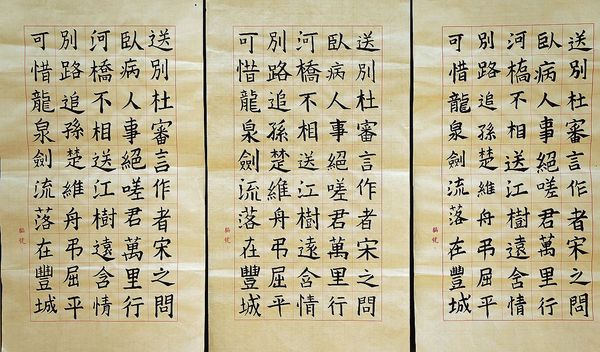 送別杜審言作者宋之問
臥病人事絕嗟君萬里行
河橋不相送江樹遠含情
別路追孫楚維舟弔屈平
可惜龍泉劍流落在豐城
送別杜審言作者宋之問
臥病人事絕嗟君萬里行
河橋不相送江樹遠含情
別路追孫楚維舟弔屈平
可惜龍泉劍流落在豐城
送別杜審言作者宋之問
臥病人事絕嗟君萬里行
河橋不相送江樹遠含情
別路追孫楚維舟弔屈平
可惜龍泉劍流落在豐城